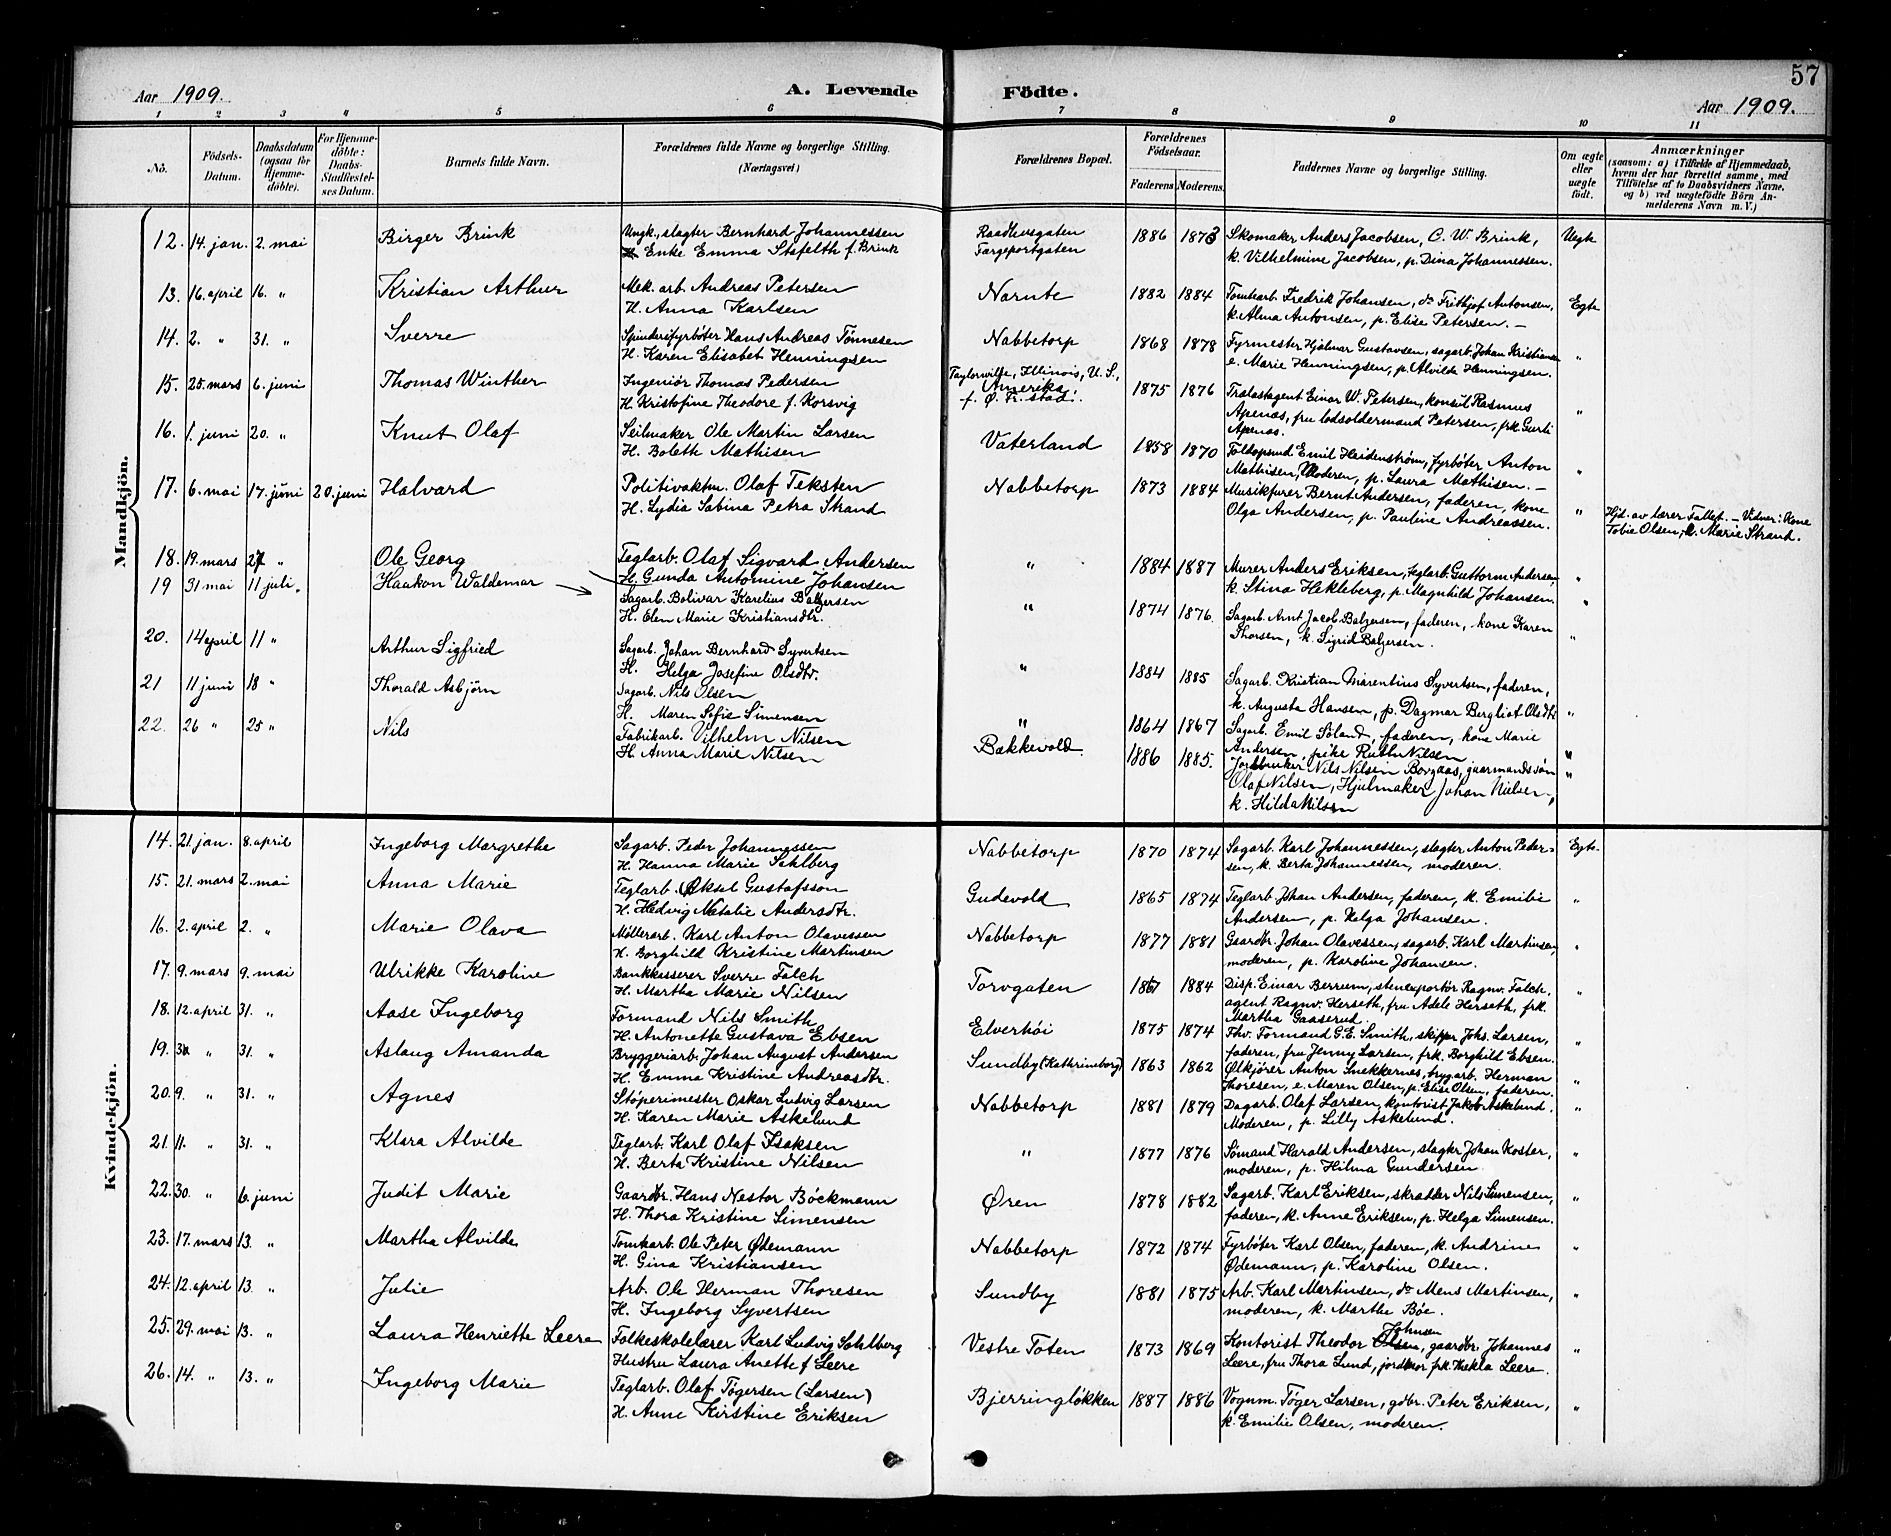 57
Aar 1909.
A. Levende Fødte.
Aar 1909.
1 2 3 4 5 6 7 8 9 10 11
No.
Fødsels-Datum.
Daabsdatum (ogsaa for Hjemme-døbte).
For Hjemme-døbte: Daabs-Stadfæstel-ses Datum.
Barnets fulde Navn.
Forældrenes fulde Navne og borgerlige Stilling. (Næringsvei)
Forældrenes Bopæl.
Forældrenes Fødselsaar.
Faderens. Moderens.
Faddernes Navne og borgerlige Stilling.
Om ægte eller uægte født.
Anmærkninger
(saasom: a) i Tilfælde af Hjemmedaab, hvem der har forrettet samme, med Tilføielse af to Daabsvidners Navne, og b) ved uægtefødte Børn An-melderens Navn m. V.)
Mandkjön.
12. 14. jan. 2. mai Birger Brink Ungk., slagter Bernhard Johannessen Raadhusgaten 1886 1873 Skomaker Anders Jacobsen, C. W. Brink, Uegte
Enke Emma Stafelth f. Brink Fargeportgaten k. Vilhelmine Jacobsen, p. Dina Johannessen.
13. 16. april 16. " Kristian Arthur Mek. arb. Andreas Petersen Narnte 1882 1884 Tomtearb. Fredrik Johansen, do Frithjof Antonsen, Egte
H. Anna Karlsen k. Alma Antonsen, p. Elise Petersen. –
14. 2. " 31. " Sverre Spinderifyrbøter Hans Andreas Tønnesen Nabbetorp 1868 1878 Fyrmester Hjalmar Gustavsen, sagarb. Johan Kristiansen "
H. Karen Elisabet Henningsen e. Marie Henningsen, p. Alvilde Henningsen.
15. 25. mars 6. juni Thomas Winther Ingeniör Thomas Pedersen Taylorville, Illinois, U. S., Amerika. 1875 1876 Trælastagent Einar W. Petersen, konsul Rasmus "
H. Kristofine Theodore f. Korsvig f. Ø. Fr.stad. Apenæs, fru lodsoldermand Petersen, frk. Gurli Apenæs.
16. 1. juni 20. " Knut Olaf Seilmaker Ole Martin Larsen Vaterland 1858 1870 Toldopsmd. Emil Heidenstrøm, fyrbøter Anton "
H. Boleth Mathisen Mathisen, Moderen, p. Laura Mathisen. –
17. 6. mai 17. juni 20. juni Halvard Politivaktm. Olaf Teksten Nabbetorp 1873 1884 Musikfurer Bernt Andersen, faderen, kone "
H. Lydia Sabina Petra Strand Olga Andersen, p. Pauline Andreassen.
Hjd. av lærer Fallet. – Vidner: Kone Tobie Olsen, k. Marie Strand.
18. 19. mars 27. " Ole Georg Teglarb. Olaf Sigvard Andersen " 1884 1887 Murer Anders Eriksen, teglarb. Guttorm Andersen "
H. Gunda Antomine Johansen k. Stina Hekleberg, p. Magnhild Johansen.
19 31 mai 11 juli. Haakon Waldemar Sagarb. Bolivar Karelius Balzersen " 1874 1876. Sagarb. Arnt Jacob Balzersen, faderen, kone Karen "
H. Elen Marie Kristiansdtr. Thorsen, k. Sigrid Balzersen.
20. 14 april 11 " Arthur Sigfried Sagarb. Johan Bernhard Syvertsen " 1884 1885 Sagarb. Kristian Marentius Syvertsen, faderen, "
H. Helga Josefine Olsdtr. k. Augusta Hansen, p. Dagmar Bergliot Olsdtr
21 11 juni 18 " Thorald Asbjørn Sagarb. Nils Olsen " 1864 1867 Sagarb. Emil Söland, faderen, kone Marie "
H. Maren Sofie Simensen Andersen, pike Ruth Nilsen
22. 26 " 25 " Nils Fabrikarb. Vilhelm Nilsen Bakkevold. 1886 1885. Jordbruker Nils Nilsen Borgaas, gaarmandssön "
H. Anna Marie Nilsen Olaf Nilsen, Hjulmaker Johan Nilsen, k. Hilda Nilsen
Kvindekjön.
14. 21. jan. 8. april Ingeborg Margrethe Sagarb. Peder Johannessen Nabbetorp 1870 1874 Sagarb. Karl Johannessen, slagter Anton Peder- Egte.
H. Hanna Marie Sahlberg sen, k. Berta Johannessen, moderen.
15. 21. mars 2. mai Anna Marie Teglarb. Aksel Gustafsson Gudevold 1865 1874 Teglarb. Johan Andersen, faderen, k. Emilie "
H. Hedvig Natalie Andersdtr. Andersen, p. Helga Johansen.
16. 2. april 2. " Marie Olava Møllerarb. Karl Anton Olavessen Nabbetorp 1877 1881 Gaardbr. Johan Olavessen, sagarb. Karl Martinsen, "
H. Borghild Kristine Martinsen moderen, p. Karoline Johansen.
17. 9. mars 9. mai Ulrikke Karoline Bankkasserer Sverre Falch Torvgaten 1867 1884 Disp. Einar Berrum, stenexportør Ragnv. Falch, "
H. Martha Marie Nilsen agent Ragnv. Herseth, fru Adele Herseth, frk. Martha Gaaserud.
18. 12. april 31. " Aase Ingeborg Formand Nils Smith Elverhöi 1875 1874 Fhv. Formand G. E. Smith, skipper Johs. Larsen, "
H. Antonette Gustava Ebsen faderen, fru Jenny Larsen, frk. Borghild Ebsen.
19. " 31. " Aslaug Amanda Bryggeriarb. Johan August Andersen Sundby (Kathrineborg) 1863 1862 Ølkjører Anton Snekkernes, brygarb. Herman "
H. Emma Kristine Andreasdtr. Thoresen, e. Maren Olsen, p. Elise Olsen, faderen.
20. 9. " 31. " Agnes Støperimester Oskar Ludvig Larsen Nabbetorp 1881 1879 Dagarb. Olaf Larsen, kontorist Jakob Askelund. "
H. Karen Marie Askelund Moderen, p. Lilly Askelund.
21. 11. " 31. " Klara Alvilde Teglarb. Karl Olaf Isaksen " 1877 1876 Sømand Harald Andersen, slagter Johan Koster, "
H. Berta Kristine Nilsen moderen, p. Hilma Gundersen
22. 30. " 6. juni Judit Marie Gaardbr. Hans Nestor Böckmann Øren 1878 1882 Sagarb. Karl Eriksen, skrædder Nils Simensen, "
H. Thora Kristine Simensen faderen, k. Anne Eriksen, p. Helga Simensen.
23. 17. mars 13. " Martha Alvilde Tomtearb. Ole Peter Ødemann Nabbetorp 1872 1874 Fyrbøter Karl Olsen, faderen, k. Andrine "
H. Gina Kristiansen Ødemann, p. Karoline Olsen.
24. 12. april 13. " Julie Arb. Ole Herman Thoresen Sundby 1881 1875 Arb. Karl Martinsen, do Mens Martinsen, "
H. Ingeborg Syvertsen moderen, k. Marthe Böe.
25. 29. mai 13. " Laura Henriette Leere Folkeskolelærer Karl Ludvig Sahlberg Vestre Toten 1873 1869 Kontorist Theodor Johnsen, gaardbr. Johannes "
Hustru Laura Anette f. Leere Leere, fru Thora Lund, jordmor frk. Thekla Leere.
26. 14. " 13. " Ingeborg Marie Teglarb. Olaf Tøgersen (Larsen) Bjerringløkken 1887 1886 Vognm. Tøger Larsen, gdbr. Peter Eriksen, "
H. Anne Kirstine Eriksen k. Emilie Olsen, moderen.